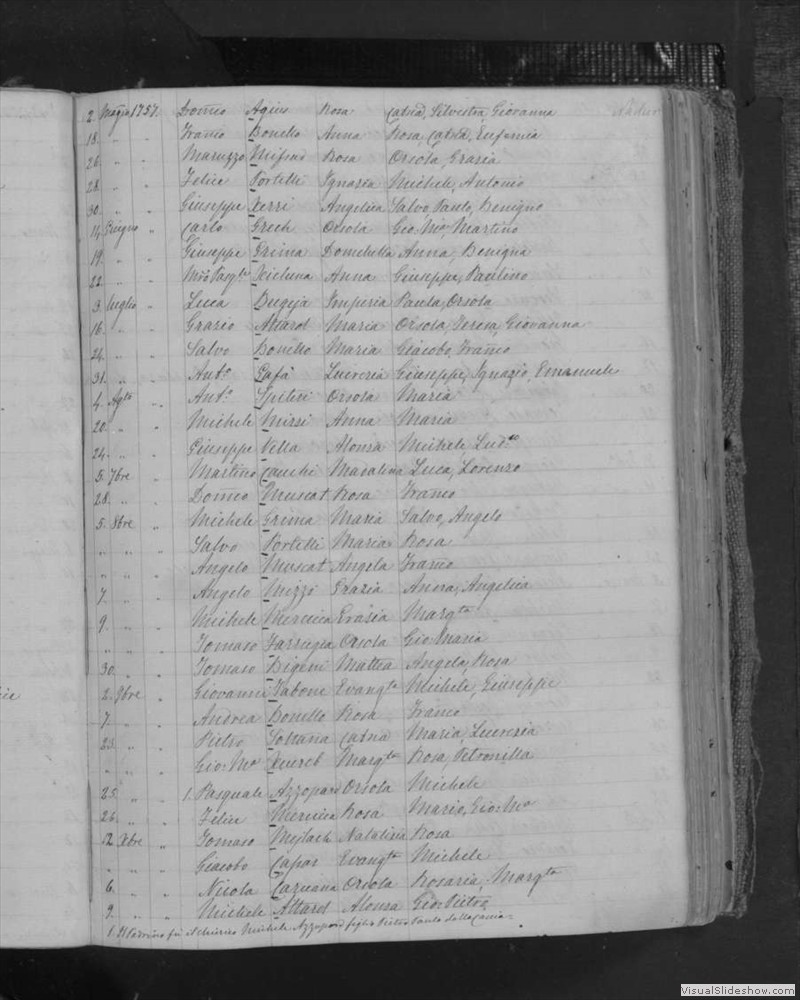 2. Maggio 1757. Domco Agius Rosa Catna, Silvestra, Giovanna Nadur
18. " " Franco Bonello Anna Rosa, Catna, Eufemia
26. " " Maruzzo Mifsud Rosa Orsola, Grazia
28. " " Felice Portelli Ignazia Michele, Antonio
30. " " Giuseppe Xerri Angelica Salvo, Paulo, Benigno
14. Giugno " Carlo Grech Orsola Gio: Ma, Martino
19. " " Giuseppe Grima Domchella Anna, Benigna
22. " " Mro Pasqle Xicluna Anna Giuseppe, Paulino
3. Luglio " Luca Bugeja Imperia Paula, Orsola
16. " " Grazio Attard Maria Orsola, Teresa, Giovanna
24. " " Salvo Bonello Maria Giacobo, Franco
31. " " Anto. Gafà Lucrezia Giuseppe, Ignazio, Emanuele
4. Agto " Anto. Spiteri Orsola Maria
20. " " Michele Mizzi Anna Maria
24. " " Giuseppe Vella Alonza Michele
5. 7bre " Martino Cauchi Macalina Luca, Lorenzo
28. " " Domco Muscat Rosa Franco
5. 8bre " Michele Grima Maria Salvo, Angelo
" " " Salvo Portelli Maria Rosa
" " " Angelo Muscat Angela Franco
7. " " Angelo Mizzi Grazia Anna, Angelica
9. " " Michele Mercieca Grazia Margta
" " " Tomaso Farrugia Orsola Gio: Maria
30. " " Tomaso Bigeni Mattea Angela, Rosa
2. 9bre " Giovanni Tabone Evangta Michele, Giuseppe
7. " " Andrea Bonello Rosa Franco
23. " " Pietro Soltana Catna Maria, Lucrezia
" " " Gio: Ma Xuereb Margta Rosa, Petronilla
25. " " 1. Pasquale Azzopard Orsola Michele
26. " " Felice Mercieca Rosa Mario, Gio: Ma
12. Xbre " Tomaso Mejlach Natalizia Rosa
" " " Giacobo Capar Evangta Michele
6. " " Nicola Cazuana Orsola Rosaria, Margta
9. " " Michele Attard Alonza Gio: Pietro
1. Il Padrino fu il chierico Michele Azzopard figlio Pietro Paulo della
VisualSlideshow.com